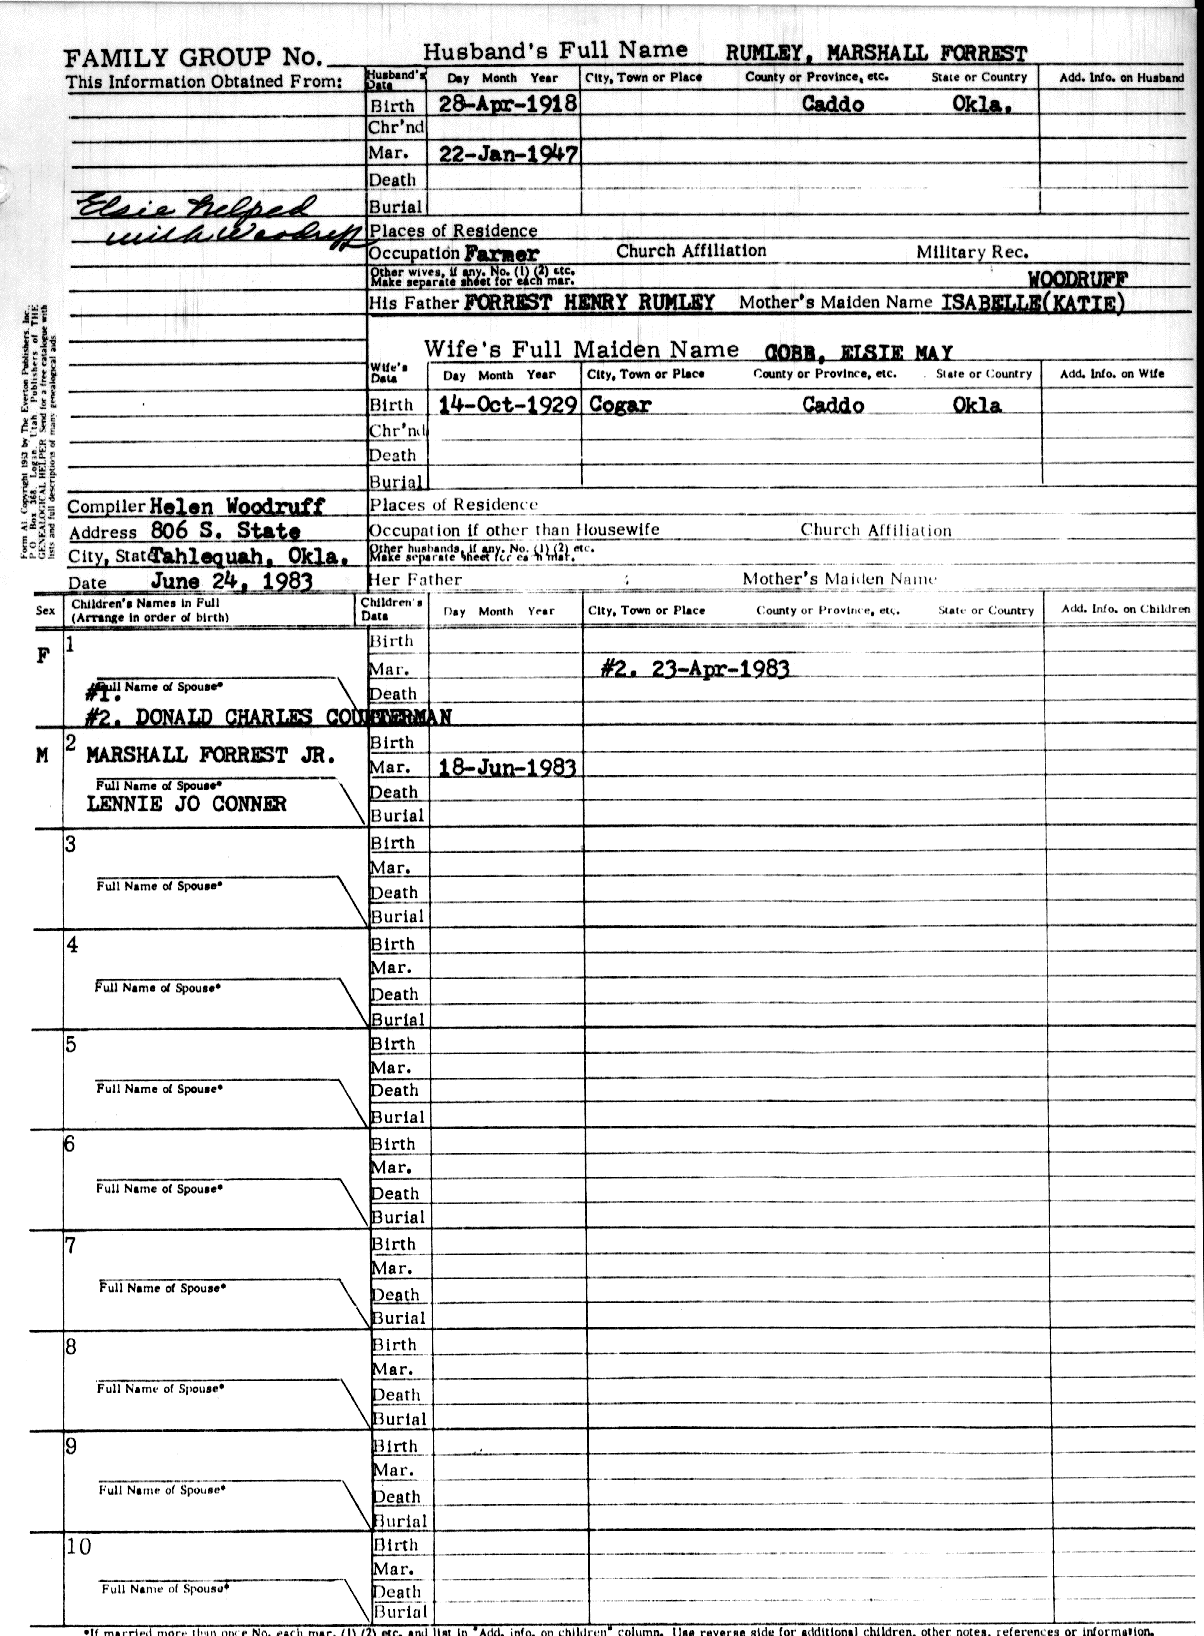 FAMILY GROUP No.
Husband's Full Name RUMLEY, MARSHALL FORREST
This Information Obtained From:
Husband's Data Day Month Year City, Town or Place County or Province, etc. State or Country Add. Info. on Husband
Birth 28-Apr-1918 Caddo Okla.
Chr'nd
Mar. 22-Jan-1947
Death
Elsie helped
Burial
with Woodruff
Places of Residence
Occupation Farmer Church Affiliation Military Rec.
Other wives, if any. No. (1) (2) etc.
Make separate sheet for each mar.
WOODRUFF
His Father FORREST HENRY RUMLEY Mother's Maiden Name ISABELLE(KATIE)
Form A1. Copyright 1963 by The Everton Publishers, Inc.
P.O. Box 368, Logan, Utah Publishers of THE
GENEALOGICAL HELPER Send for a free catalogue with
lists and full descriptions of many genealogical aids
Wife's Full Maiden Name COBB, ELSIE MAY
Wife's Data Day Month Year City, Town or Place County or Province, etc. State or Country Add. Info. on Wife
Birth 14-Oct-1929 Cogar Caddo Okla
Chr'nd
Death
Burial
Compiler Helen Woodruff Places of Residence
Address 806 S. State Occupation if other than Housewife Church Affiliation
City, State Tahlequah, Okla. Other husbands, if any. No. (1) (2) etc.
Make separate sheet for each mar.
Date June 24, 1983 Her Father Mother's Maiden Name
Sex Children's Names in Full (Arrange in order of birth) Children's Data Day Month Year City, Town or Place County or Province, etc. State or Country Add. Info. on Children
1 Birth
F Mar. #2. 23-Apr-1983
#1. Full Name of Spouse* Death
#2. DONALD CHARLES COUNTERMAN
2 Birth
M MARSHALL FORREST JR. Mar. 18-Jun-1983
Full Name of Spouse* Death
LENNIE JO CONNER Burial
3 Birth
Mar.
Full Name of Spouse* Death
Burial
4 Birth
Mar.
Full Name of Spouse* Death
Burial
5 Birth
Mar.
Full Name of Spouse* Death
Burial
6 Birth
Mar.
Full Name of Spouse* Death
Burial
7 Birth
Mar.
Full Name of Spouse* Death
Burial
8 Birth
Mar.
Full Name of Spouse* Death
Burial
9 Birth
Mar.
Full Name of Spouse* Death
Burial
10 Birth
Mar.
Full Name of Spouse* Death
Burial
*If married more than once No. each mar. (1) (2) etc. and list in "Add. info. on children" column. Use reverse side for additional children, other notes, references or information.